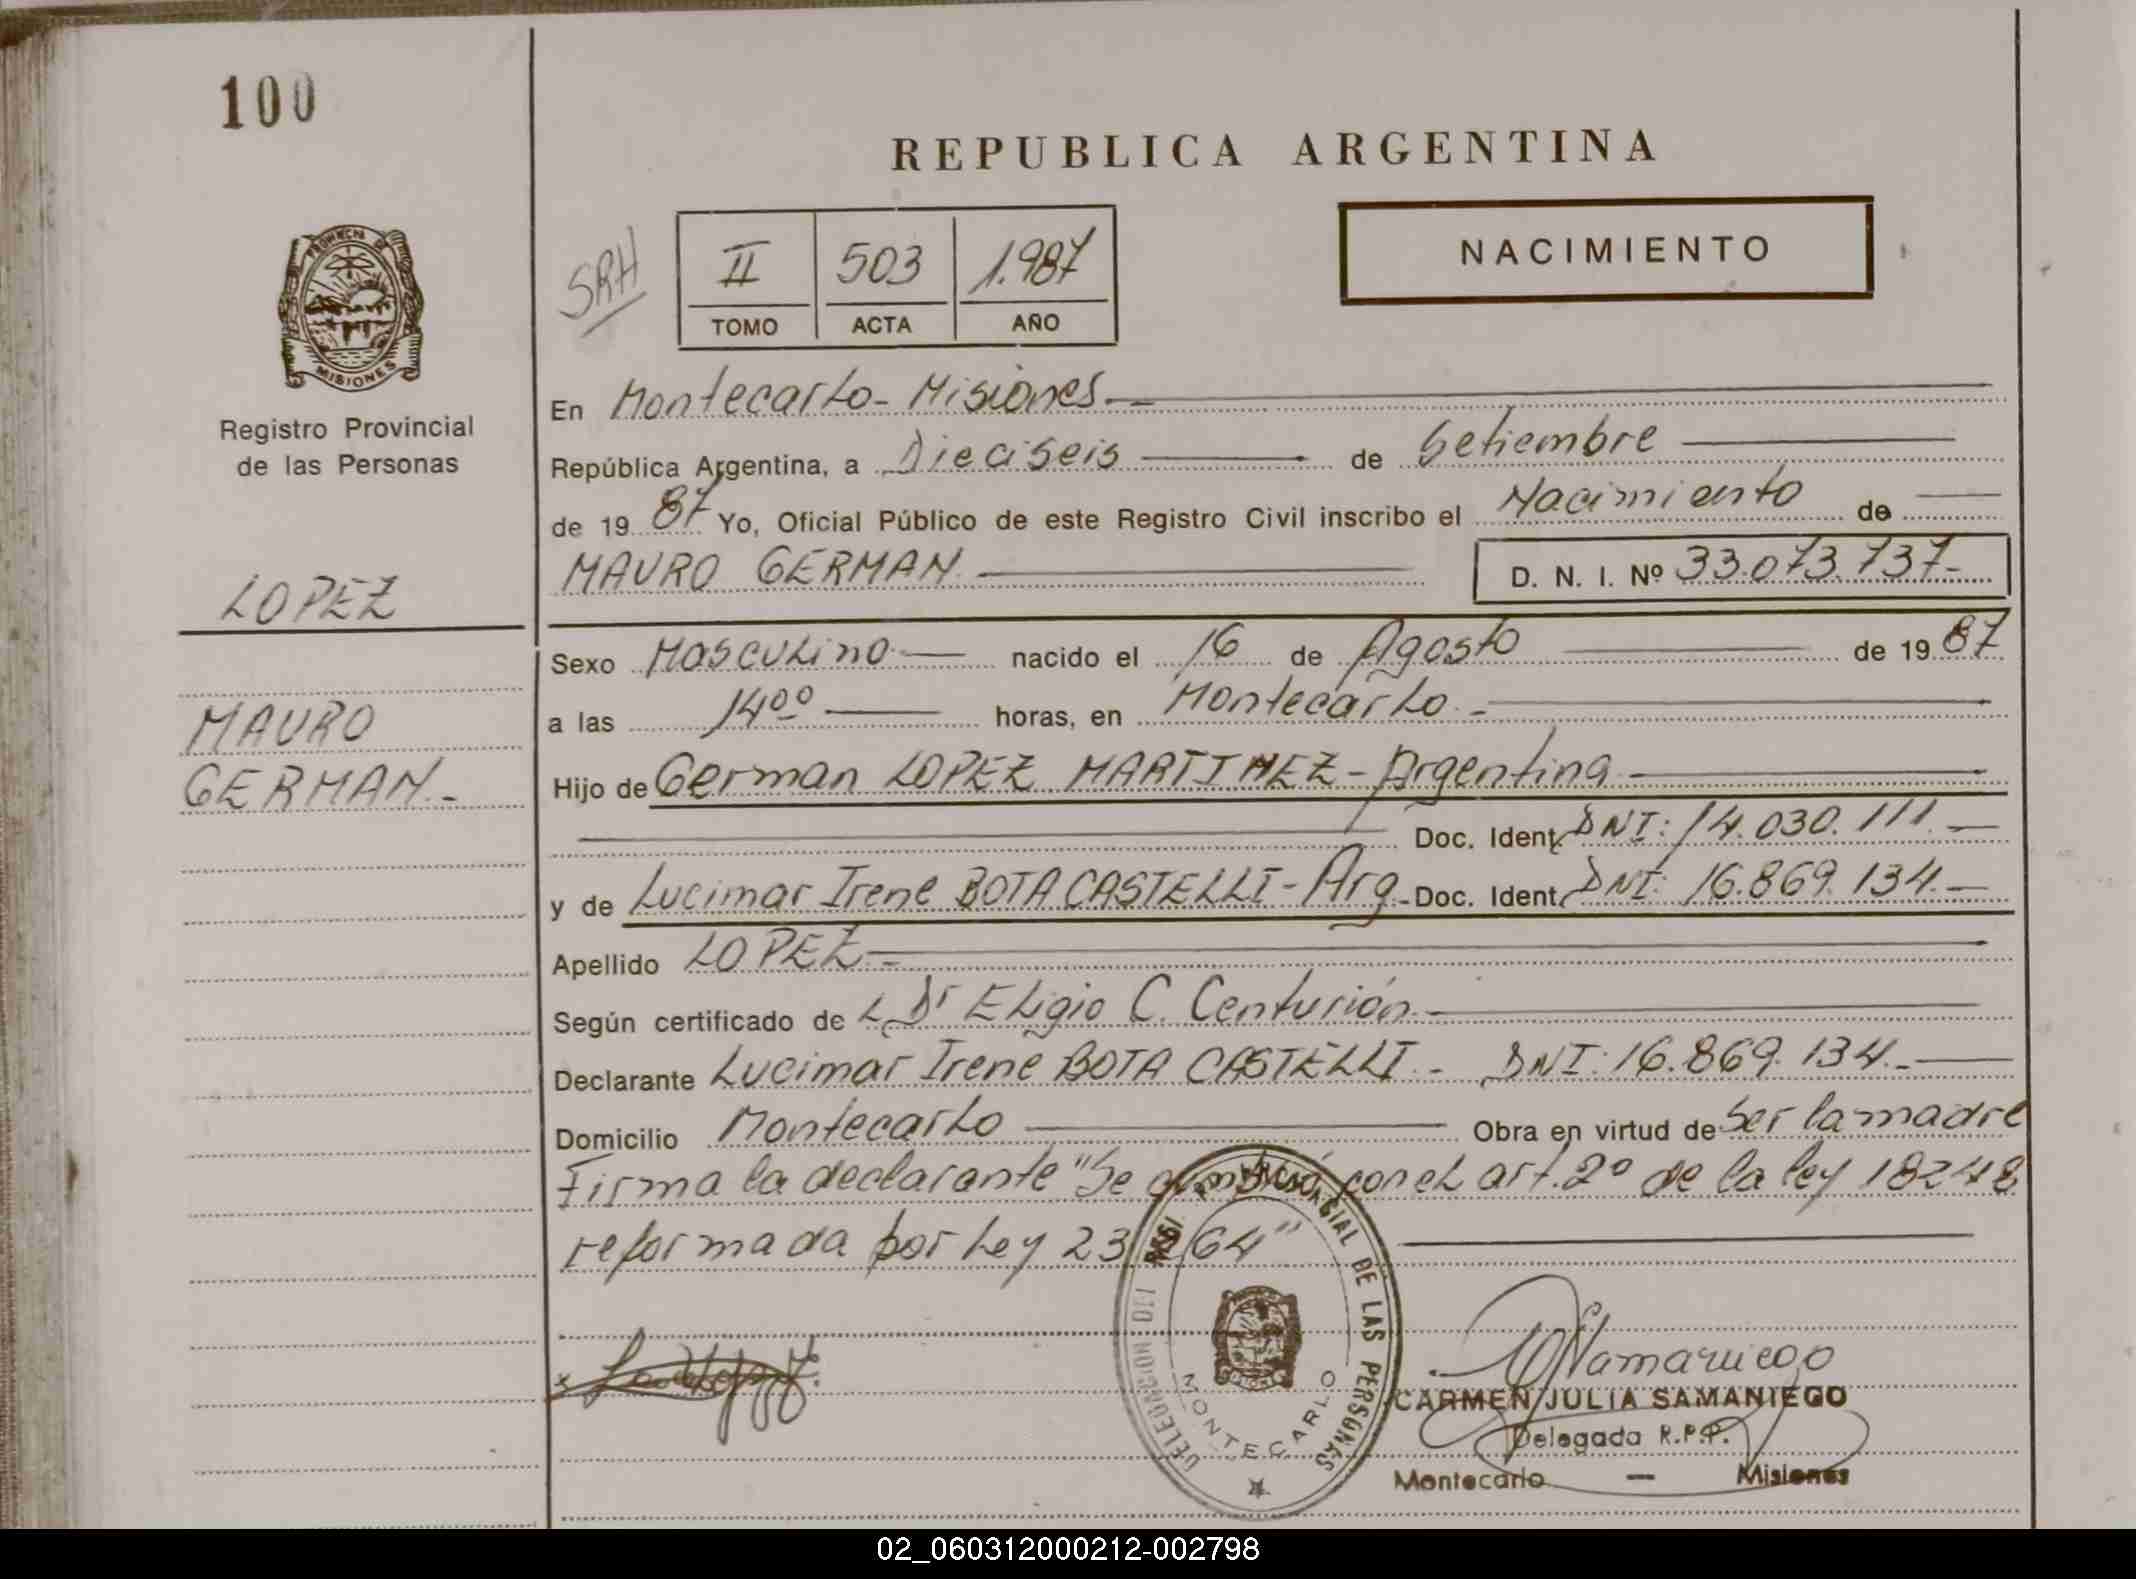 100
REPUBLICA ARGENTINA
SRH
II 503 1.987
TOMO ACTA AÑO
NACIMIENTO
PROVINCIA DE MISIONES
Registro Provincial
de las Personas
LOPEZ
MAURO
GERMAN.-
En Montecarlo - Misiones.-
República Argentina, a Dieciseis de Setiembre
de 19 87 Yo, Oficial Público de este Registro Civil inscribo el Nacimiento de
MAURO GERMAN. D. N. I. Nº 33.073.737-
Sexo Masculino nacido el 16 de Agosto de 19 87
a las 14⁰⁰ horas, en Montecarlo.-
Hijo de German LOPEZ MARTINEZ - Argentina
Doc. Ident. DNI: 14.030.111.-
y de Lucimar Irene BOTA CASTELLI - Arg. Doc. Ident. DNI: 16.869.134.-
Apellido LOPEZ.-
Según certificado de L Dr Eligio C. Centurión.-
Declarante Lucimar Irene BOTA CASTELLI.- DNI: 16.869.134.-
Domicilio Montecarlo Obra en virtud de Ser la madre
Firma la declarante "Se cumplió con el art. 2º de la ley 18248
reformada por Ley 23 264"
DELEGACION DEL REGISTRO PROVINCIAL DE LAS PERSONAS
MONTECARLO
CARMEN JULIA SAMANIEGO
Delegada R.P.P.
Montecarlo — Misiones
02_060312000212-002798